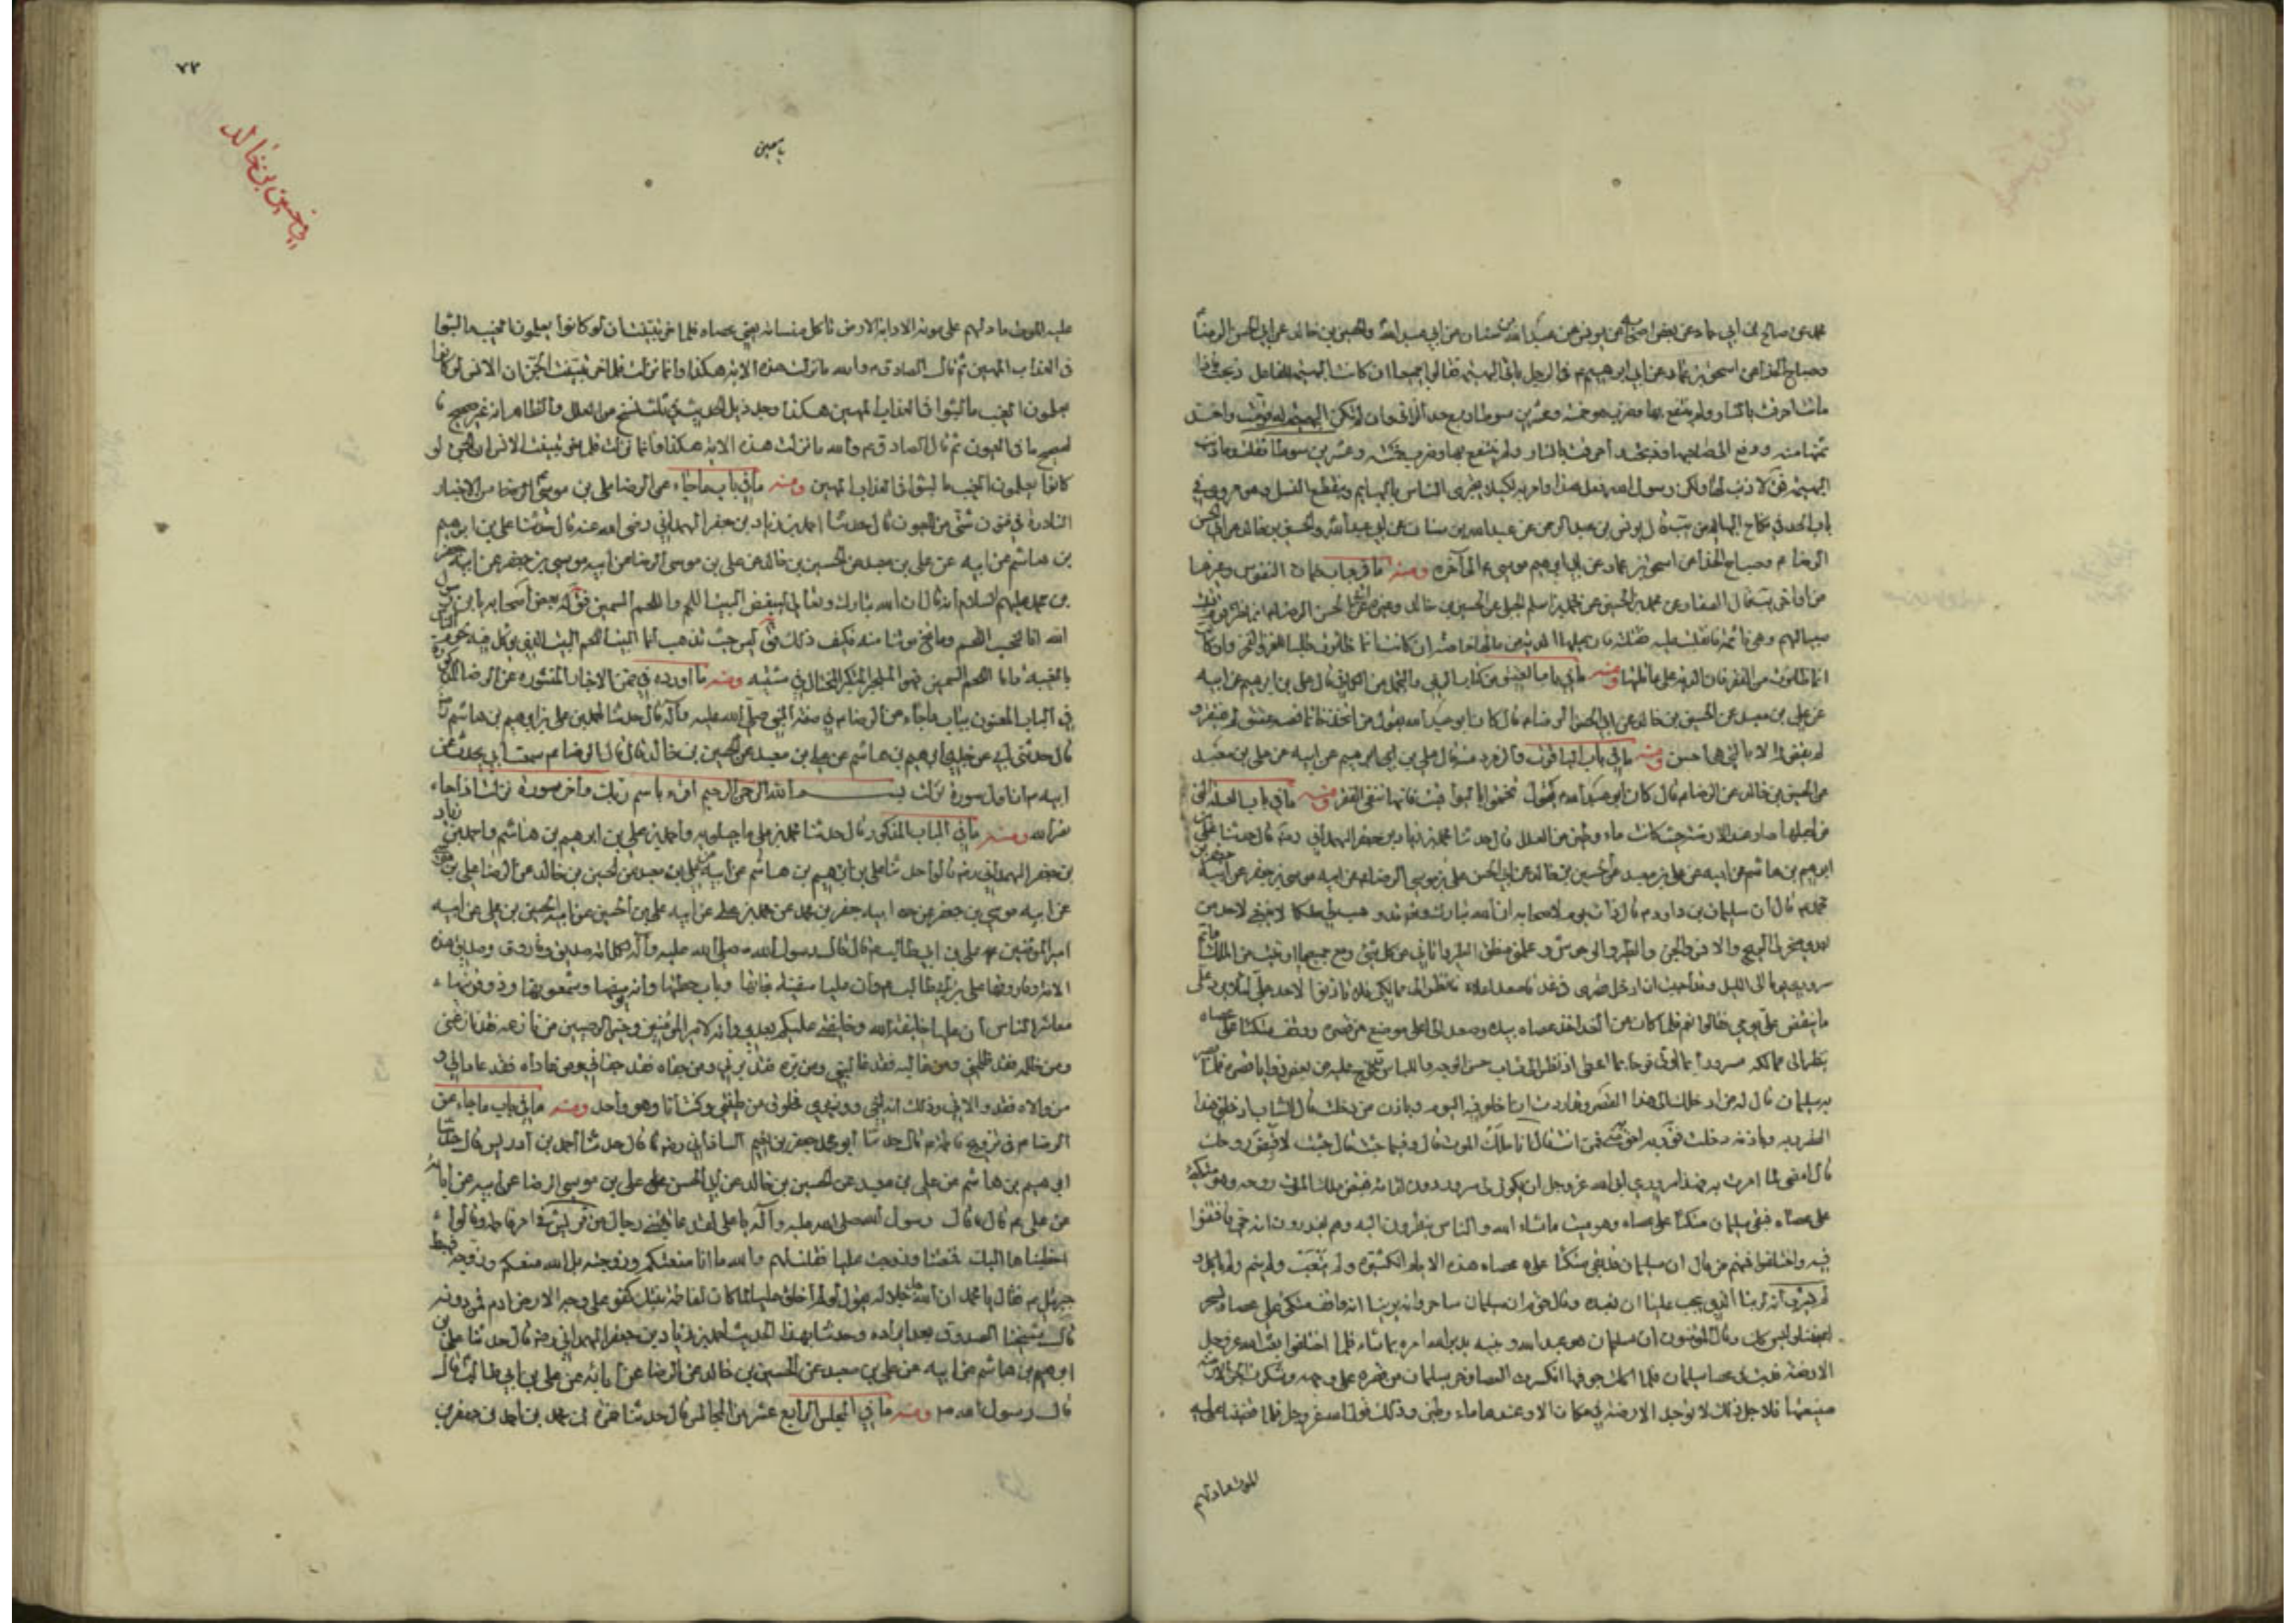 محمد عن صالح بن ابي حماد عن بعض اصحابه عن يونس عن عبد الله بن سنان عن ابي عبد الله والحسين بن خالد عن ابي الحسن الرضا
وصباح الحذاء عن اسحق بن عمار عن ابي ابرهيم م في الرجل ياتي البهيمة فقالوا جميعا ان كانت البهيمة للفاعل ذبحت فاذا
ماتت احرقت بالنار ولم ينتفع بها وضرب هو خمسة وعشرين سوطا ربع حد الزاني وان لم تكن البهيمة له قومت واخذ
ثمنها منه ودفع الى صاحبها وذبحت واحرقت بالنار ولم ينتفع بها وضرب خمسة وعشرين سوطا فقلت وما ذنب
البهيمة فق لا ذنب لها ولكن رسول الله فعل هذا وامر به لكيلا يجتزى الناس بالبهايم وينقطع النسل
باب الحد في نكاح البهايم يونس بن عبد الرحمن عن عبد الله بن سنان عن ابي عبد الله والحسين بن خالد عن ابي الحسن
الرضا م وصباح الحذاء عن اسحق بن عمار عن ابي ابرهيم موسى م الى آخره ومنه ما في باب ضمان النفوس وغيرها
عن محمد بن اسلم الجبلي عن الحسين بن خالد وغيره عن ابي الحسن الرضا
صبيا لهم وهي نائمة فانقلبت عليه فقتلته فان عليها الدية من مالها خاصة ان كانت انما ظائرت طلب العز والفخر وان كانت
انما ظائرت من الفقر فان الدية على عاقلتها ومنه ما في باب العقيق من كتاب الزي والتجمل من الكافي قال علي بن ابرهيم عن ابيه
عن علي بن معبد عن الحسين بن خالد عن ابي الحسن الرضا م قال كان ابو عبد الله يقول من اتخذ خاتما فصه عقيق لم يفتقر و
لم يقض له الا بالتي هي احسن ومنه ما في باب الياقوت والزمرد منه قال علي بن ابرهيم عن ابيه عن علي بن معبد
عن الحسين بن خالد عن الرضا م قال كان ابو عبد الله م يقول تختموا باليواقيت فانها تنفي الفقر ومنه ما في باب العلة التي
من اجلها صار عند الارضة حيث كانت ماء وطين من العلل قال حدثنا احمد بن زياد بن جعفر الهمداني رضه قال حدثنا علي بن
ابرهيم بن هاشم عن ابيه عن علي بن معبد عن الحسين بن خالد عن ابي الحسن علي بن موسى الرضا م عن ابيه موسى بن جعفر عن ابيه جعفر بن
محمد م قال ان سليمان بن داود م قال ذات يوم لاصحابه ان الله تبارك وتعالى قد وهب لي ملكا لا ينبغي لاحد من
بعدي سخر لي الريح والانس والجن والطير والوحوش وعلمني منطق الطير واتاني من كل شيء ومع جميع ما اوتيت من الملك ما تم
سروري يوما الى الليل وقد احببت ان ادخل قصري في غد فاصعد اعلاه فانظر الى ممالكي فلا تاذنوا لاحد علي لئلا يرد علي
ما ينغص علي يومي فقالوا نعم فلما كان من الغد اخذ عصاه بيده وصعد الى اعلى موضع من قصره ووقف متكئا على عصاه
ينظر الى ممالكه مسرورا بما اوتي فرحا بما اعطي اذ نظر الى شاب حسن الوجه واللباس قد خرج عليه من بعض زوايا قصره فلما بصر
به سليمان قال له من ادخلك الى هذا القصر وقد اردت ان اخلو فيه اليوم وباذن من دخلت قال الشاب ادخلني هذا
القصر ربه وباذنه دخلت فق ربه احق به مني فمن انت قال انا ملك الموت قال وفيما جئت قال جئت لاقبض روحك
قال امض لما امرت به فهذا يوم سروري ابى الله عز وجل ان يكون لي سرور دون لقائه فقبض ملك الموت روحه وهو متكئ
على عصاه فبقي سليمان متكئا على عصاه وهو ميت ما شاء الله والناس ينظرون اليه وهم يقدرون انه حي فافتتنوا
فيه واختلفوا فمنهم من قال ان سليمان قد بقي متكئا على عصاه هذه الايام الكثيرة ولم يتعب ولم ينم ولم ياكل و
لم يشرب انه لربنا الذي يجب علينا ان نعبده وقال قوم ان سليمان ساحر وانه يرينا انه واقف متكئ على عصاه يسحر
اعيننا وليس كك وقال المؤمنون ان سليمان هو عبد الله ونبيه يدبر الله امره بما شاء فلما اختلفوا بعث الله عز وجل
الارضة فدبت في عصا سليمان فلما اكلت جوفها انكسرت العصا وخر سليمان من قصره على وجهه
صنيعها فلاجل ذلك لا توجد الارضة في مكان الا وعندها ماء وطين وذلك قول الله عز وجل فلما قضينا عليه
الموت ما دلهم
٧٣
ابن حسين بن خالد
عليه الموت ما دلهم على موته الا دابة الارض تاكل منساته يعني عصاه فلما خر تبينت ان لو كانوا يعلمون الغيب ما لبثوا
في العذاب المهين ثم قال الصادق م والله ما نزلت هذه الاية هكذا وانما نزلت فلما خر تبينت الجن ان الانس لو كانوا
يعلمون الغيب ما لبثوا في العذاب المهين هكذا وجد ذيل الحديث في ثلث نسخ من العلل والظاهر انه غير صحيح
ما في العيون ثم قال الصادق م والله ما نزلت هذه الاية هكذا وانما نزلت فلما خر تبينت الانس ان الجن لو
كانوا يعلمون الغيب ما لبثوا في العذاب المهين ومنه ما في باب ما جاء عن الرضا علي بن موسى من الاخبار
النادرة في فنون شتى من العيون قال حدثنا احمد بن زياد بن جعفر الهمداني رضي الله عنه قال حدثنا علي بن ابرهيم
بن هاشم عن ابيه عن علي بن معبد عن الحسين بن خالد عن علي بن موسى الرضا عن ابيه موسى بن جعفر عن ابيه جعفر
بن محمد عليهم السلام انه قال ان الله تبارك وتعالى ليبغض البيت اللحم واللحم السمين فق له بعض اصحابه يا بن رسول
الله انا لنحب اللحم وما تخلو بيوتنا منه فكيف ذلك فق ليس حيث تذهب انما البيت اللحم البيت الذي يؤكل فيه لحوم الناس
بالغيبة واما اللحم السمين فهو المتبختر المتكبر المختال في مشيه ومنه ما اورده في ضمن الاخبار المنثورة عن الرضا
في الباب المعنون بباب ما جاء عن الرضا م في صفة النبي صلى الله عليه وآله قال حدثنا احمد بن علي بن ابرهيم بن هاشم
قال حدثني ابي عن جدي ابرهيم بن هاشم عن علي بن معبد عن الحسين بن خالد قال قال الرضا م سمعت ابي يحدث عن
ابيه م ان اول سورة نزلت بسم الله الرحمن الرحيم اقرء باسم ربك وآخر سورة نزلت اذا جاء
نصر الله ومنه ما في الباب المذكور قال حدثنا محمد بن علي ماجيلويه واحمد بن علي بن ابرهيم بن هاشم واحمد بن زياد
بن جعفر الهمداني رضه قالوا حدثنا علي بن ابرهيم بن هاشم عن ابيه عن علي بن معبد عن الحسين بن خالد عن الرضا علي بن موسى
عن ابيه موسى بن جعفر عن ابيه جعفر بن محمد عن محمد بن علي عن ابيه علي بن الحسين عن ابيه الحسين بن علي عن ابيه
امير المؤمنين علي بن ابي طالب م قال قال رسول الله صلى الله عليه وآله لكل امة صديق وفاروق وصديق هذه
الامة وفاروقها علي بن ابي طالب م وان عليا سفينة نجاتها وباب حطتها وانه يوشعها وشمعونها وذو قرنيها
معاشر الناس ان عليا خليفة الله وخليفتي عليكم بعدي وانه لامير المؤمنين وخير الوصيين من نازعه فقد نازعني
ومن ظلمه فقد ظلمني ومن غالبه فقد غالبني ومن بره فقد برني ومن جفاه فقد جفاني ومن عاداه فقد عاداني و
من والاه فقد والاني وذلك انه اخي ووزيري مخلوق من طينتي وكنت انا وهو واحد ومنه ما في باب ما جاء عن
الرضا م في تزويج فاطمة م قال حدثنا ابو محمد جعفر بن نعيم الشاذاني رضه قال حدثنا احمد بن ادريس قال حدثنا
ابرهيم بن هاشم عن علي بن معبد عن الحسين بن خالد عن ابي الحسن علي بن موسى الرضا عن ابيه عن ابائه
عن علي م قال قال رسول الله صلى الله عليه وآله يا علي لقد عاتبتني رجال من قريش في امر فاطمة وقالوا
خطبناها اليك فمنعتنا وزوجت عليا فقلت لهم والله ما انا منعتكم وزوجته بل الله منعكم وزوجه فهبط
جبرئيل م فقال يا محمد ان الله جل جلاله يقول لو لم اخلق عليا لما كان لفاطمة بنتك كفو على وجه الارض ادم فمن دونه
قال شيخنا الصدوق بعد ايراده وحدثنا بهذا الحديث احمد بن زياد بن جعفر الهمداني رضه قال حدثنا علي بن
ابرهيم بن هاشم عن ابيه عن علي بن معبد عن الحسين بن خالد عن الرضا عن ابائه عن علي بن ابي طالب قال
قال رسول الله ص ومنه ما في المجلس الرابع عشر من المجالس قال حدثنا حمزة بن محمد بن احمد بن جعفر بن